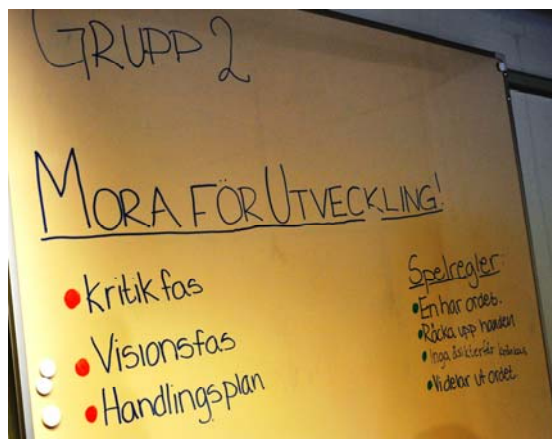 GRUPP 2
MORA FÖR UTVECKLING!
Kritikfas
Visionsfas
Handlingsplan
Spelregler:
En har ordet.
Räcka upp handen
Inga åsikter får
Vi delar ut ordet.